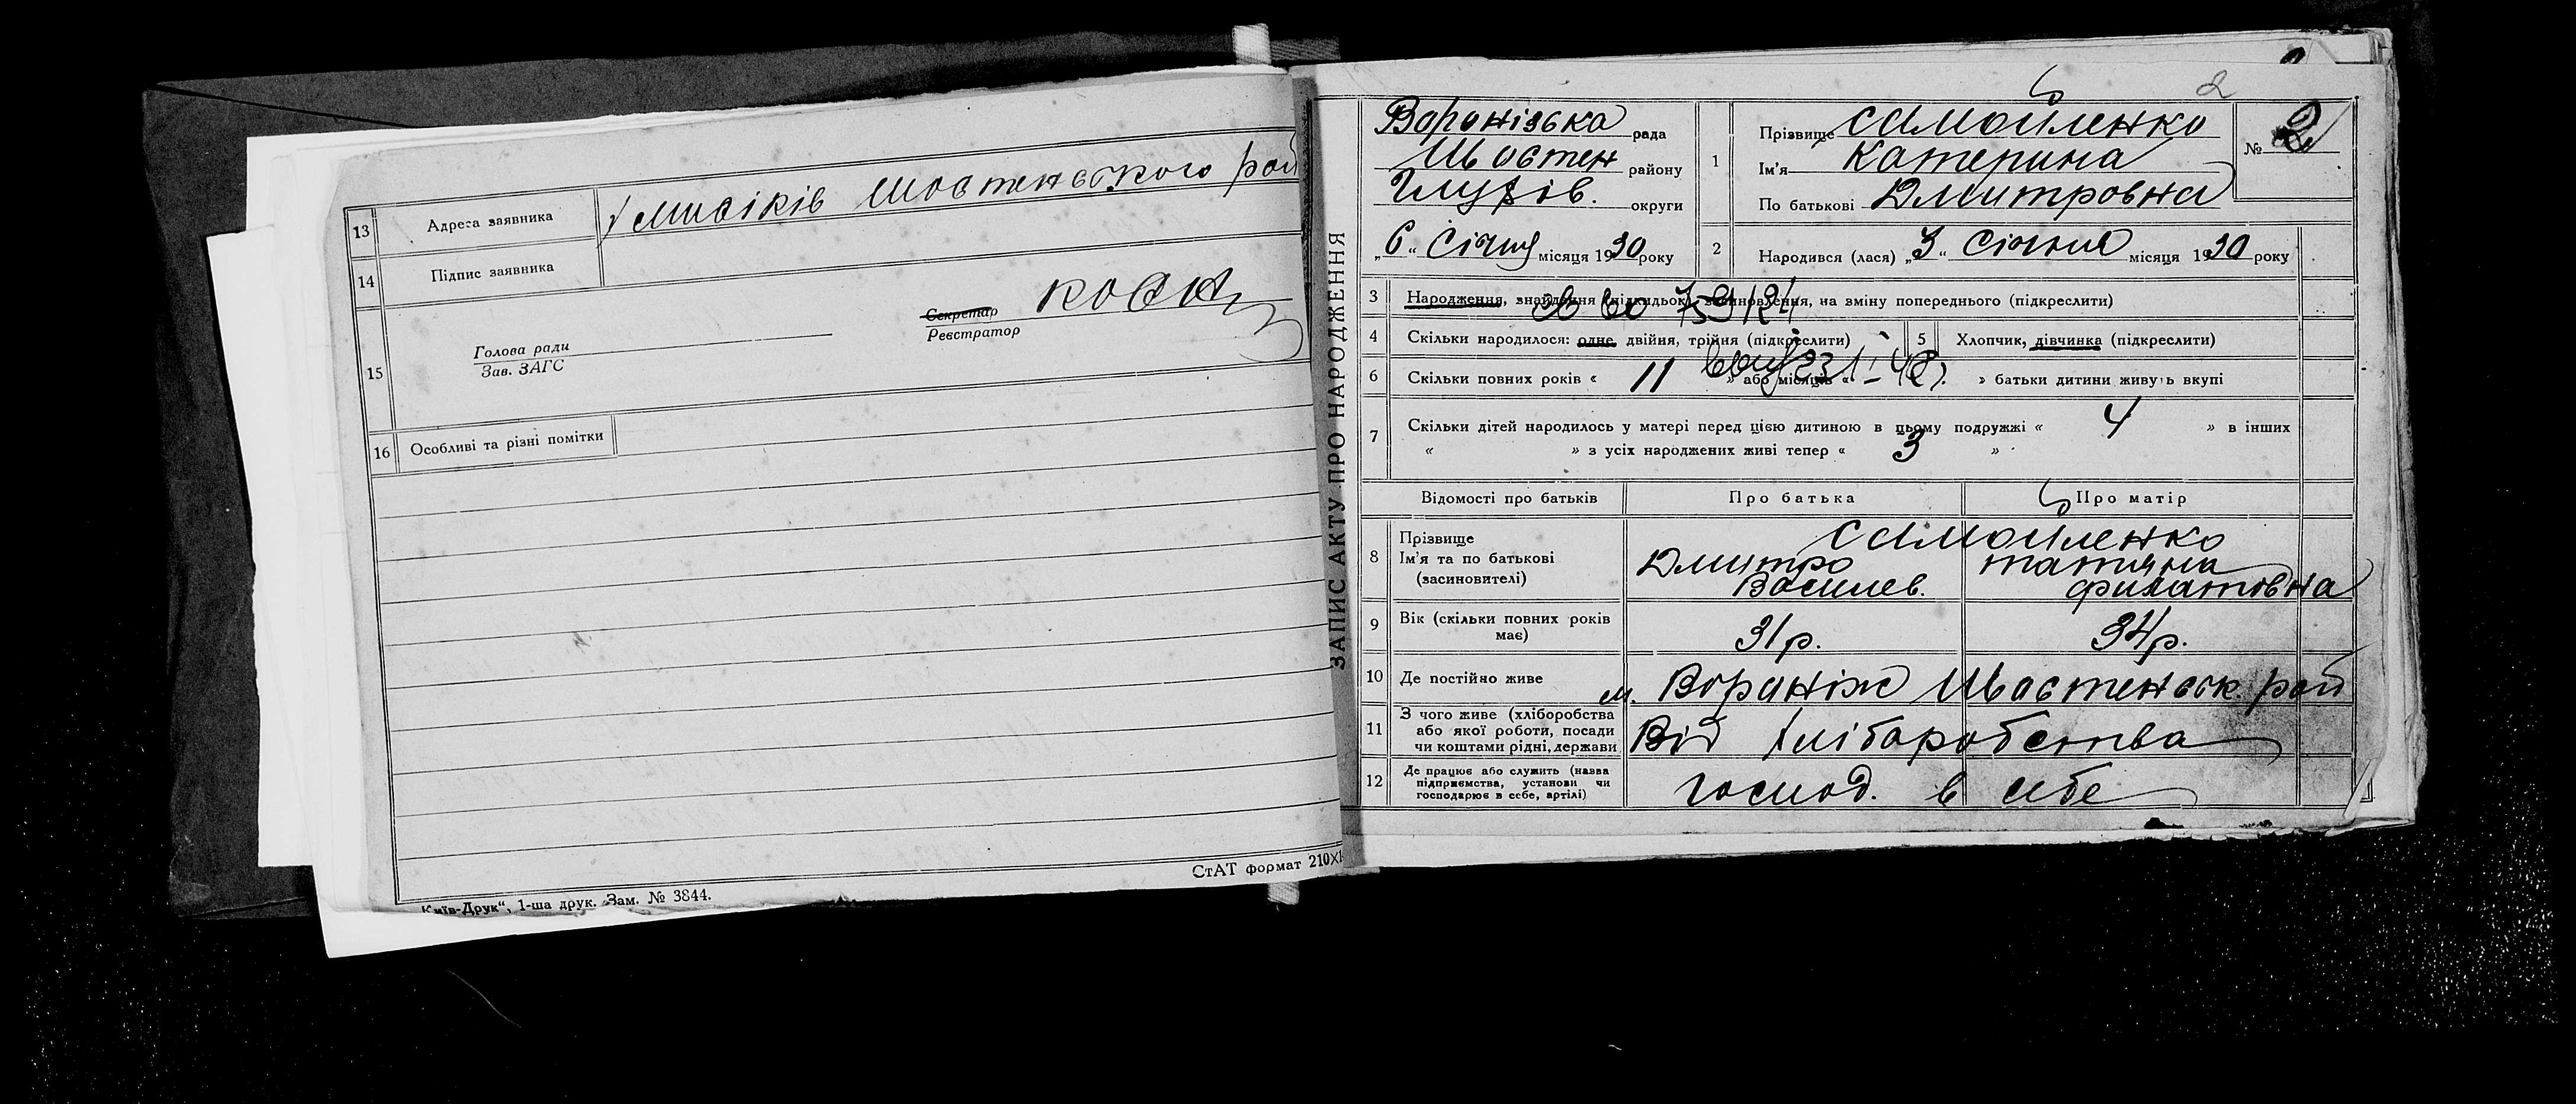 13 Адреса заявника х Мисіків Шостенського рай
14 Підпис заявника
15 Голова ради
Зав. ЗАГС
Секретар
Реєстратор
16 Особливі та різні помітки
Київ-Друк“, 1-ша друк. Зам. № 3844.
СтАТ формат 210×1
ЗАПИС АКТУ ПРО НАРОДЖЕННЯ
2
Воронізька рада
Шостен району
Глухів. округи
„6“ Січня місяця 1930 року
1 Прізвище Самойленко
Ім'я Катерина
По батькові Дмитровна
№ 2
2 Народився (лася) „3“ Січня місяця 1930 року
3 Народження, знайдення (підкидьок), всиновлення, на зміну попереднього (підкреслити)
4 Скільки народилося: одне, двійня, трійня (підкреслити) 5 Хлопчик, дівчинка (підкреслити)
6 Скільки повних років « 11 » або місяців « » батьки дитини живуть вкупі
7 Скільки дітей народилось у матері перед цією дитиною в цьому подружжі « 4 » в інших
« » з усіх народжених живі тепер « 3 »
Відомості про батьків Про батька Про матір
8 Прізвище Самойленко
Ім'я та по батькові Дмитро Татяна
(засиновителі) Василев. Филатовна
9 Вік (скільки повних років має) 31 р. 34 р.
10 Де постійно живе м. Вороніж Шостенськ. рай
11 З чого живе (хліборобства
або якої роботи, посади
чи коштами рідні, держави Від хліборобства
12 Де працює або служить (назва
підприємства, установи чи
господарює в себе, артілі) господ. в себе